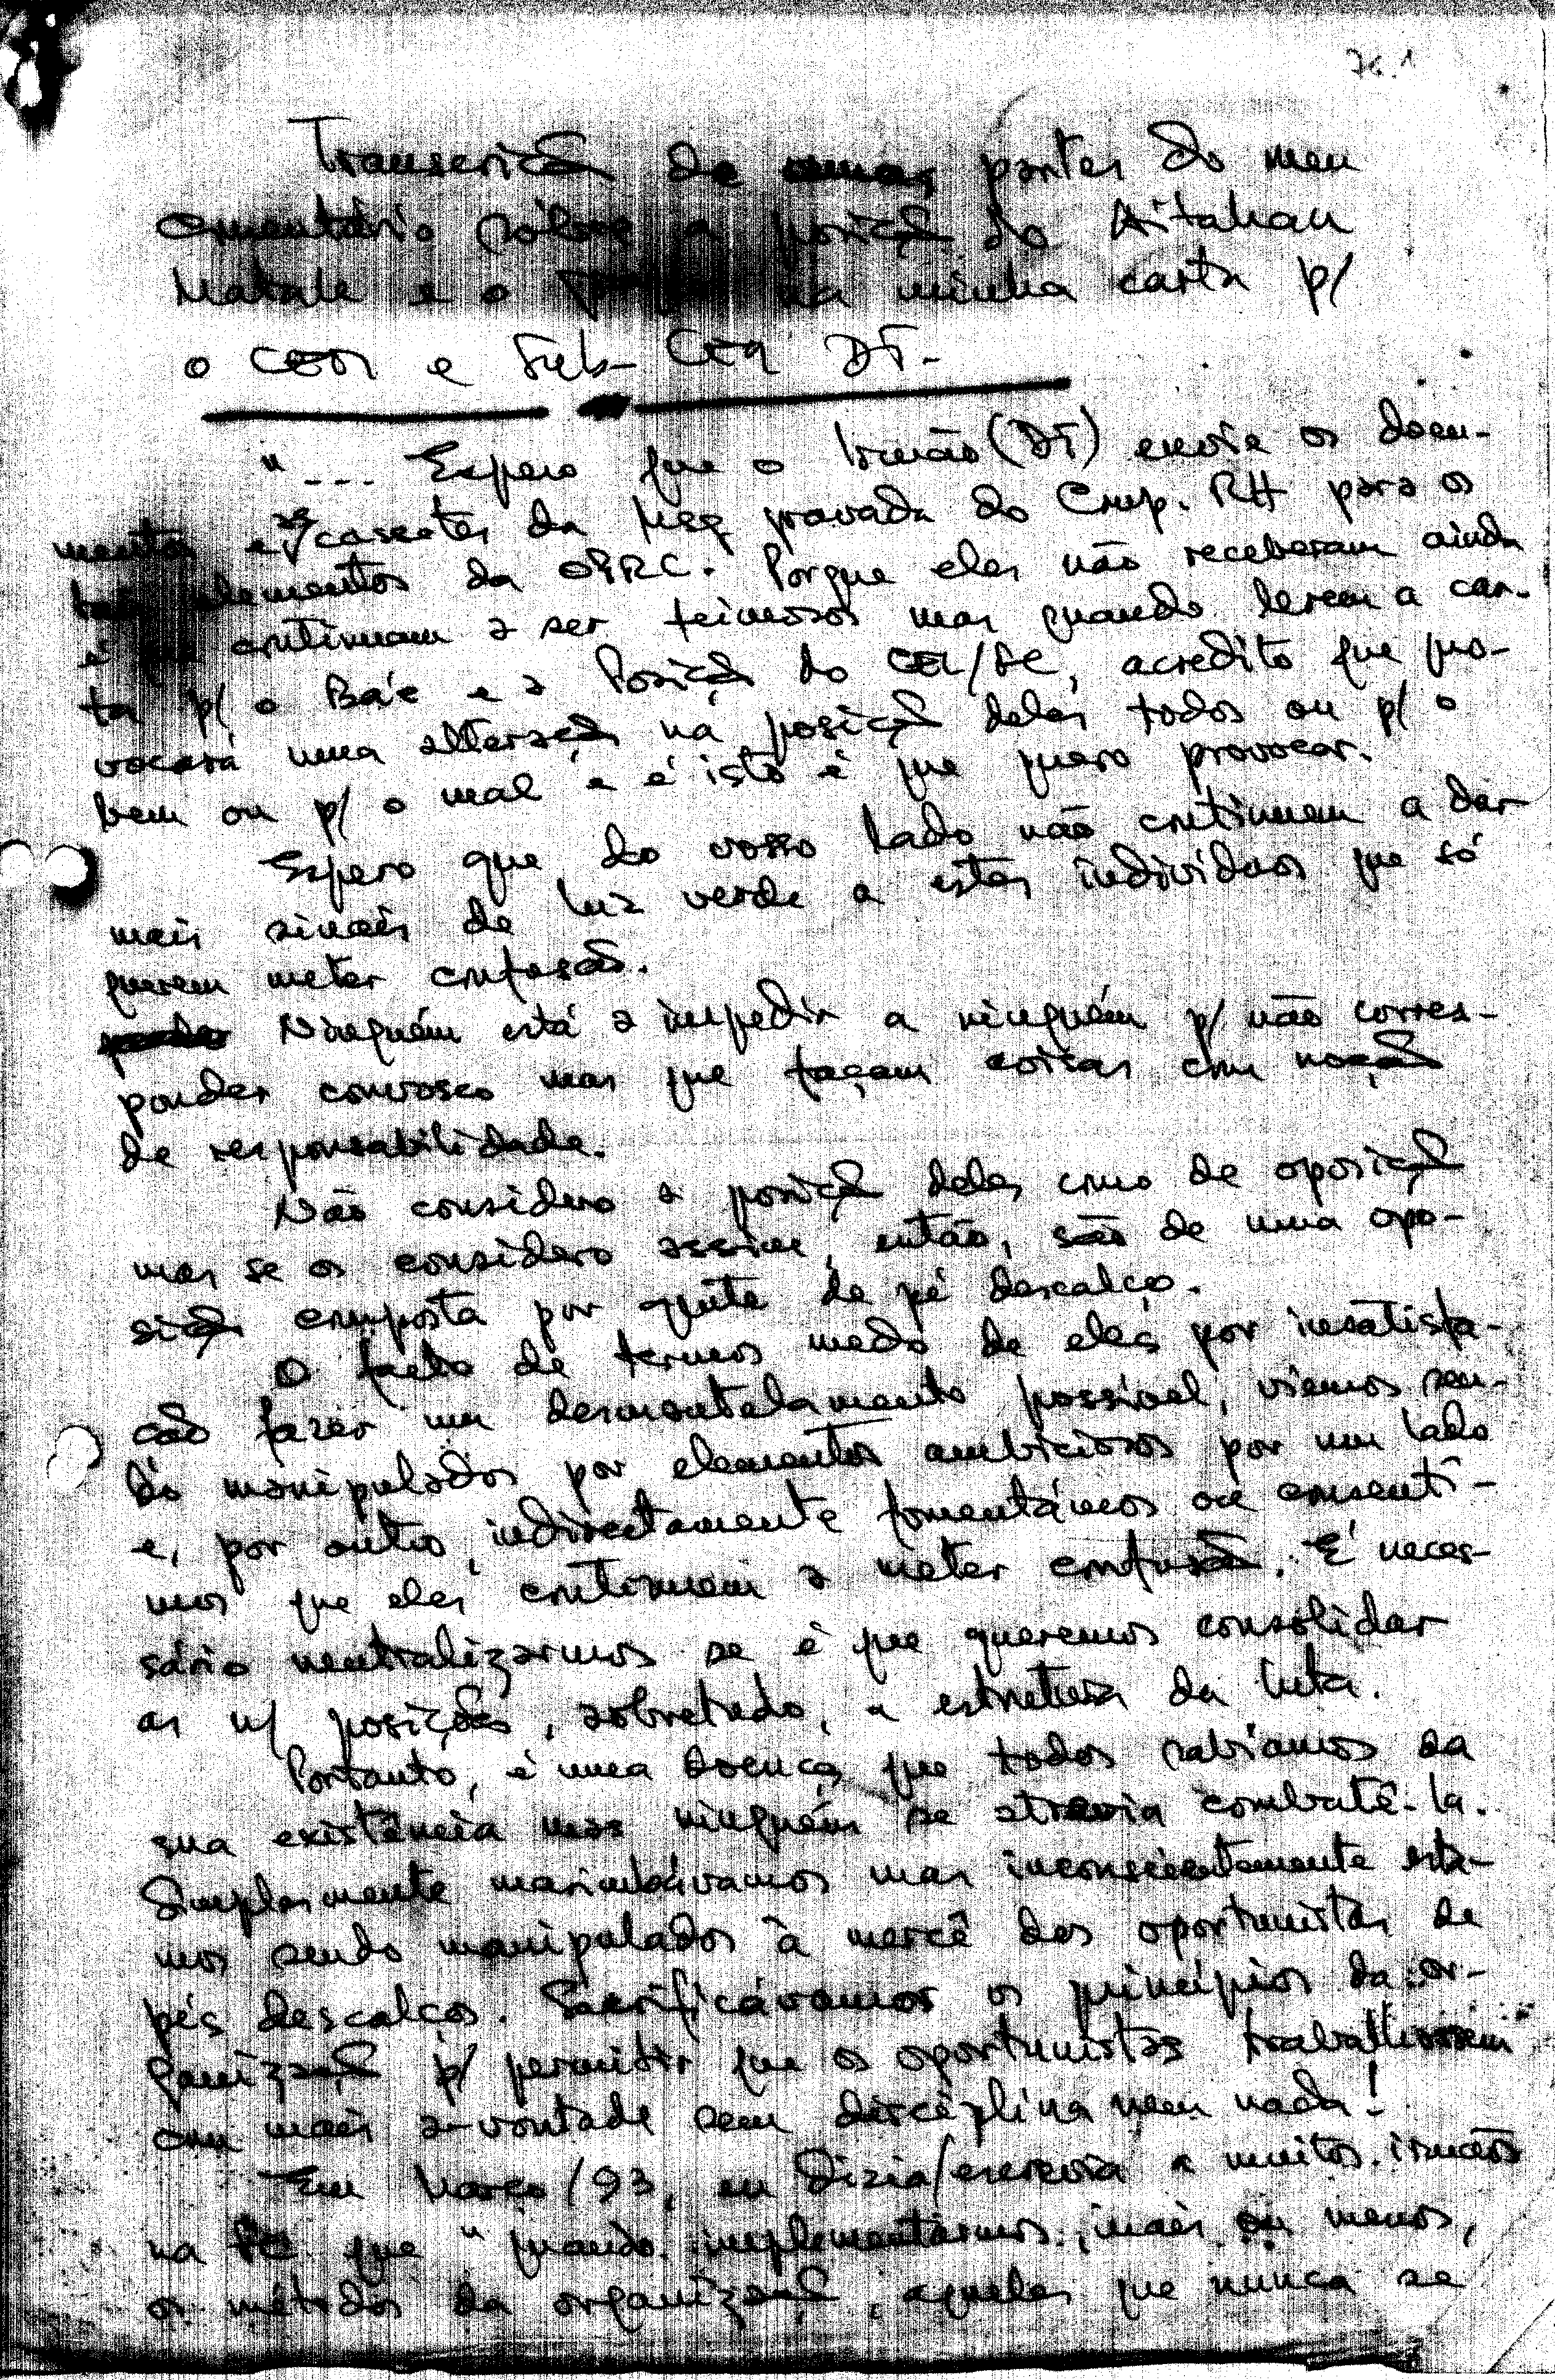 Transcrição de umas partes do meu
comentário sôbre a posição do Aitahan
Matak e o na minha carta p/
o CEL e Sub-CEL DT-
"... Espero que o Irmão (DT) envie os docu-
mentos e as cassetes da Msg gravada do Cmp. RH para os
tais elementos da OPRC. Porque eles não receberam ainda
é que continuam a ser teimosos mas quando lerem a car-
ta p/ o Ba'e e a Posição do CEL/FC, acredito que pro-
vocará uma alteração na posição deles todos ou p/ o
bem ou p/ o mal e é isto é que quero provocar.
Espero que do vosso lado não continuem a dar
mais sinais de luz verde a estes indivíduos que só
querem meter confusão.
Ninguém está a impedir a ninguém p/ não corres-
ponder convosco mas que façam coisas com noção
de responsabilidade.
Não considero a posição deles como de oposição
mas se os considero assim, então, são de uma opo-
sição composta por gente de pé descalço.
O facto de termos medo de eles por insatisfa-
ção fazer um desmantelamento possível, viemos sen-
do manipulados por elementos ambiciosos por um lado
e, por outro, indirectamente fomentámos ou consenti-
mos que eles continuem a meter confusão. É neces-
sário neutralizarmos se é que queremos consolidar
as n/ posições, sobretudo, a estrutura da luta.
Portanto, é uma doença que todos sabíamos da
sua existência mas ninguém se atrevia combatê-la.
Simplesmente marimbávamos mas inconscientemente esta-
mos sendo manipulados à mercê dos oportunistas de
pés descalços. Sacrificávamos os princípios da or-
ganização p/ permitir que os oportunistas trabalhassem
com mais a-vontade sem disciplina nem nada!
Em Março/93, eu dizia/escrevia a muitos irmãos
na FC que "quando implementarmos, mais ou menos,
os métodos da organização, aqueles que nunca se